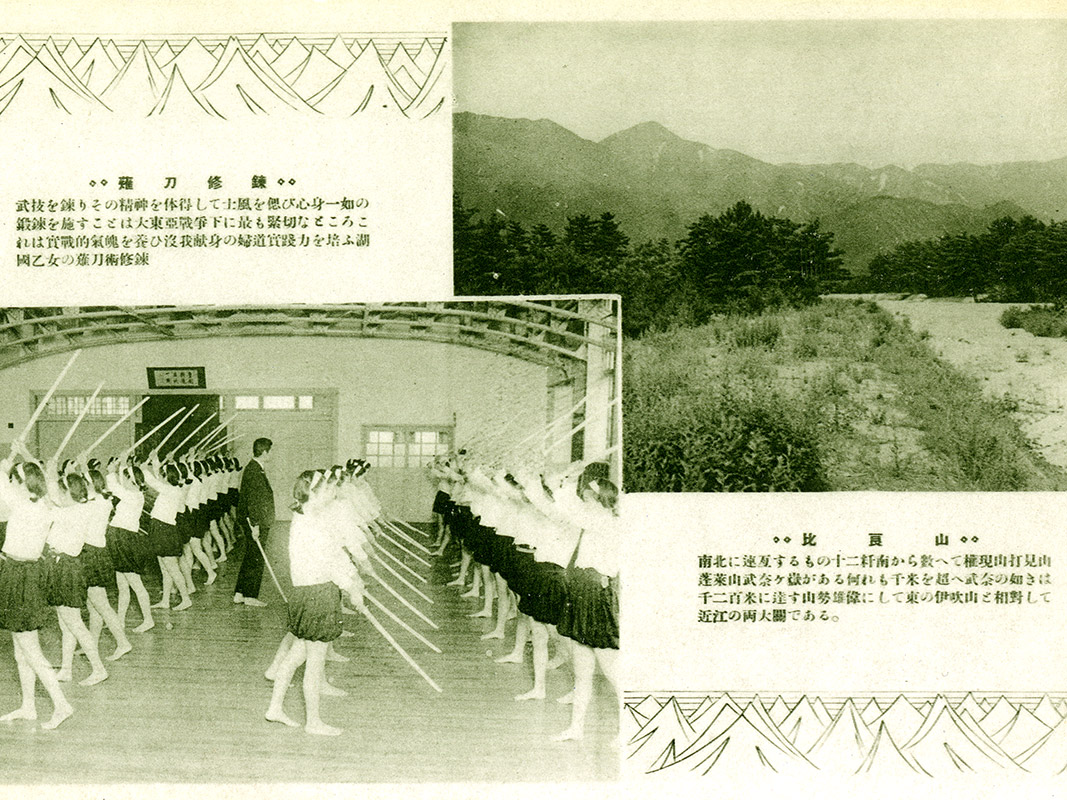 ◇◇ 薙刀修鍊 ◇◇
武技を鍊りその精神を体得して士風を偲び心身一如の
鍛鍊を施すことは大東亞戰爭下に最も緊切なところこ
れは實戰的氣魄を養ひ沒我献身の婦道實踐力を培ふ湖
國乙女の薙刀術修鍊
◇◇ 比良山 ◇◇
南北に連亙するもの十二粁南から數へて權現山打見山
蓬萊山武奈ヶ嶽がある何れも千米を超へ武奈の如きは
千二百米に達す山勢雄偉にして東の伊吹山と相對して
近江の両大關である。